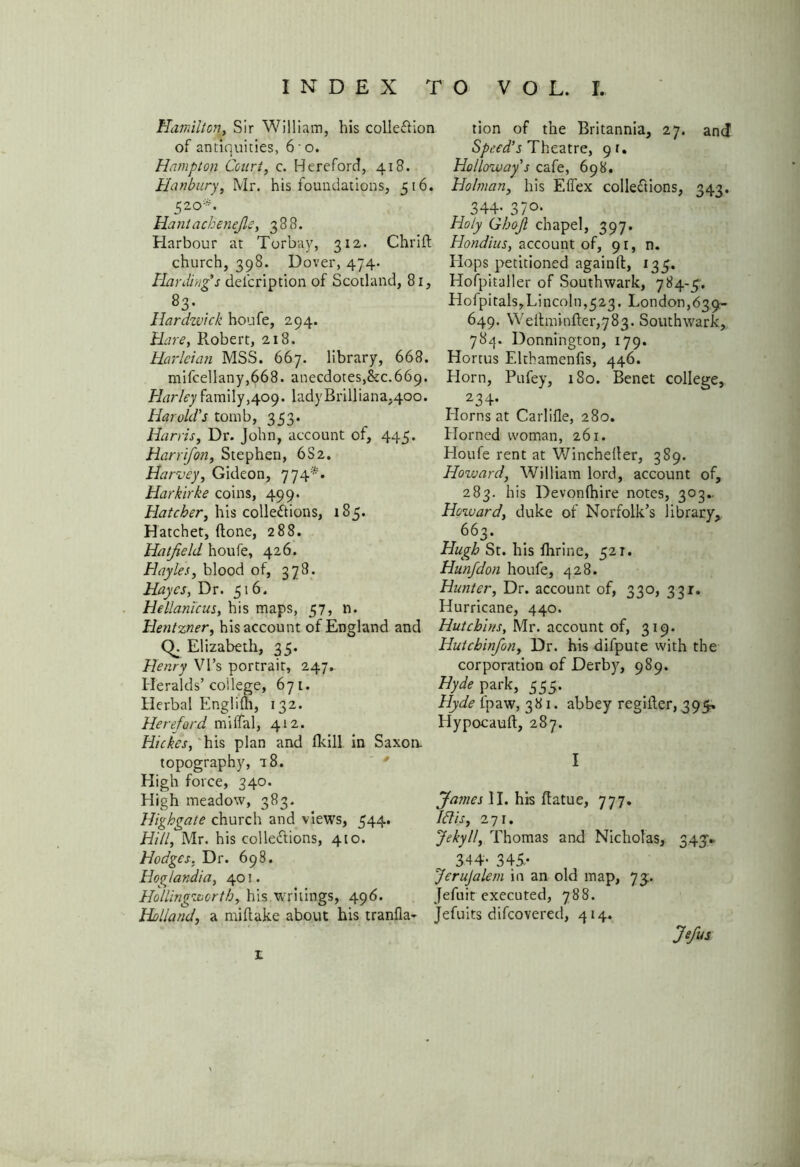 INDEX TO VOL. I.
Hamilton, Sir William, his collection
of antiquities, 6 o.
Hampton Court, c. Hereford, 418.
Hanbury, Mr. his foundations, 516.
520*.
Hantachenesle, 388.
Harbour at Torbay, 312. Chriſt
church, 398. Dover, 474.
Harding's deſcription of Scotland, 81,
83.
Hardwick houſe, 294.
Hare, Robert, 218.
Harleian MSS. 667. library, 668.
miſcellany,668. anecdotes,&c.669.
Harley family,409. ladyBrilliana,400.
Harold's tomb, 353.
Harris, Dr. John, account of, 445.
Harriſon, Stephen, 682.
Harvey, Gideon, 774*.
Harkirke coins, 499.
Hatcher, his collections, 185.
Hatchet, ſtone, 288.
Hatfield houſe, 426.
Hayles, blood of, 378.
Hayes, Dr. 516.
Hellanicus, his maps, 57, n.
Hentzner, his account of England and
Q. Elizabeth, 35.
Henry VI's portrait, 247.
Heralds' college, 671.
Herbal Engliſh, 132.
Hereford miſſal, 412.
Hickes, his plan and ſkill in Saxon
topography, 18.
High force, 340.
High meadow, 383.
Highgate church and views, 544.
Hill, Mr. his collections, 410.
Hodges, Dr. 698.
Hoglandia, 401.
Hollingworth, his writings, 496.
Holland, a miſtake about his tranſla-
tion of the Britannia, 27. and
Speed's Theatre, 91.
Holloway's caſe, 698.
Holman, his Eſſex collections, 343.
344. 370.
Holy Ghoſt chapel, 397.
Hondius, account of, 91, n.
Hops petitioned againſt, 135.
Hoſpitaller of Southwark, 784-5.
Hoſpitals, Lincoln,523. London,639-
649. Weſtminſter,783. Southwark,
784. Donnington, 179.
Hortus Elthamenſis, 446.
Horn, Puſey, 180. Benet college,
234.
Horns at Carliſle, 280.
Horned woman, 261.
Houſe rent at Wincheſter, 389.
Howard, William lord, account of,
283. his Devonſhire notes, 303.
Howard, duke of Norfolk's library,
663.
Hugh St. his ſhrine, 521.
Hunſdon houſe, 428.
Hunter, Dr. account of, 330, 331.
Hurricane, 440.
Hutchins, Mr. account of, 319.
Hutchinſon, Dr. his diſpute with the
corporation of Derby, 989.
Hyde park, 555.
Hyde ſpaw, 381. abbey regiſter, 395.
Hypocauſt, 287.
I
James II. his ſtatue, 777.
Ictis, 271.
Jekyll, Thomas and Nicholas, 343.
344. 345.
Jeruſalem in an old map, 73.
Jeſuit executed, 788.
Jeſuits diſcovered, 414.
Jeſus
I